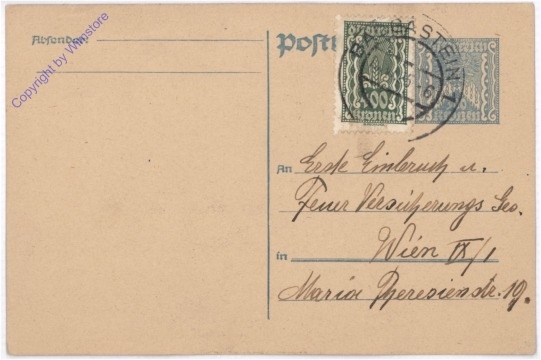 Absender:
Copyright by Winstore
Post
BADGASTEIN 1
100
Kronen
Kronen
An Erste Einbruch u.
Feuer Versicherungs Ges.
in Wien IX/1
Maria Theresienstr. 19.